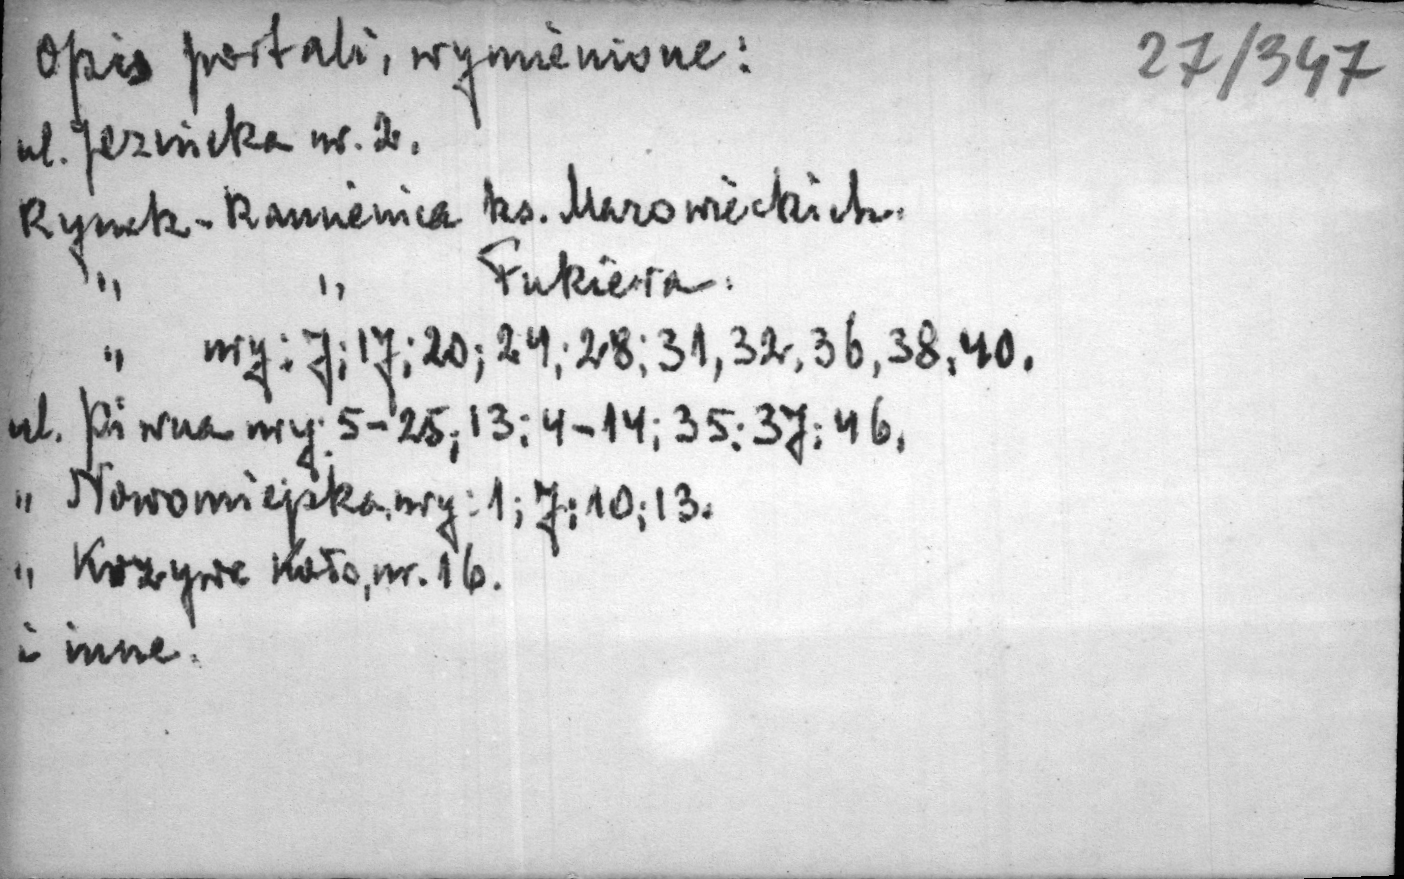 27/347
Opis portali, wymienione:
ul. Jezuicka nr. 2.
Rynek - Kamienica ks. Mazowieckich.
" " Fukiera.
" nry: 7; 17; 20; 24; 28; 31, 32, 36, 38, 40.
ul. Piwna nry: 5-25; 13; 4-14; 35; 37; 46.
" Nowomiejska, nry: 1; 7; 10; 13.
" Krzywe Koło, nr. 16.
i inne.